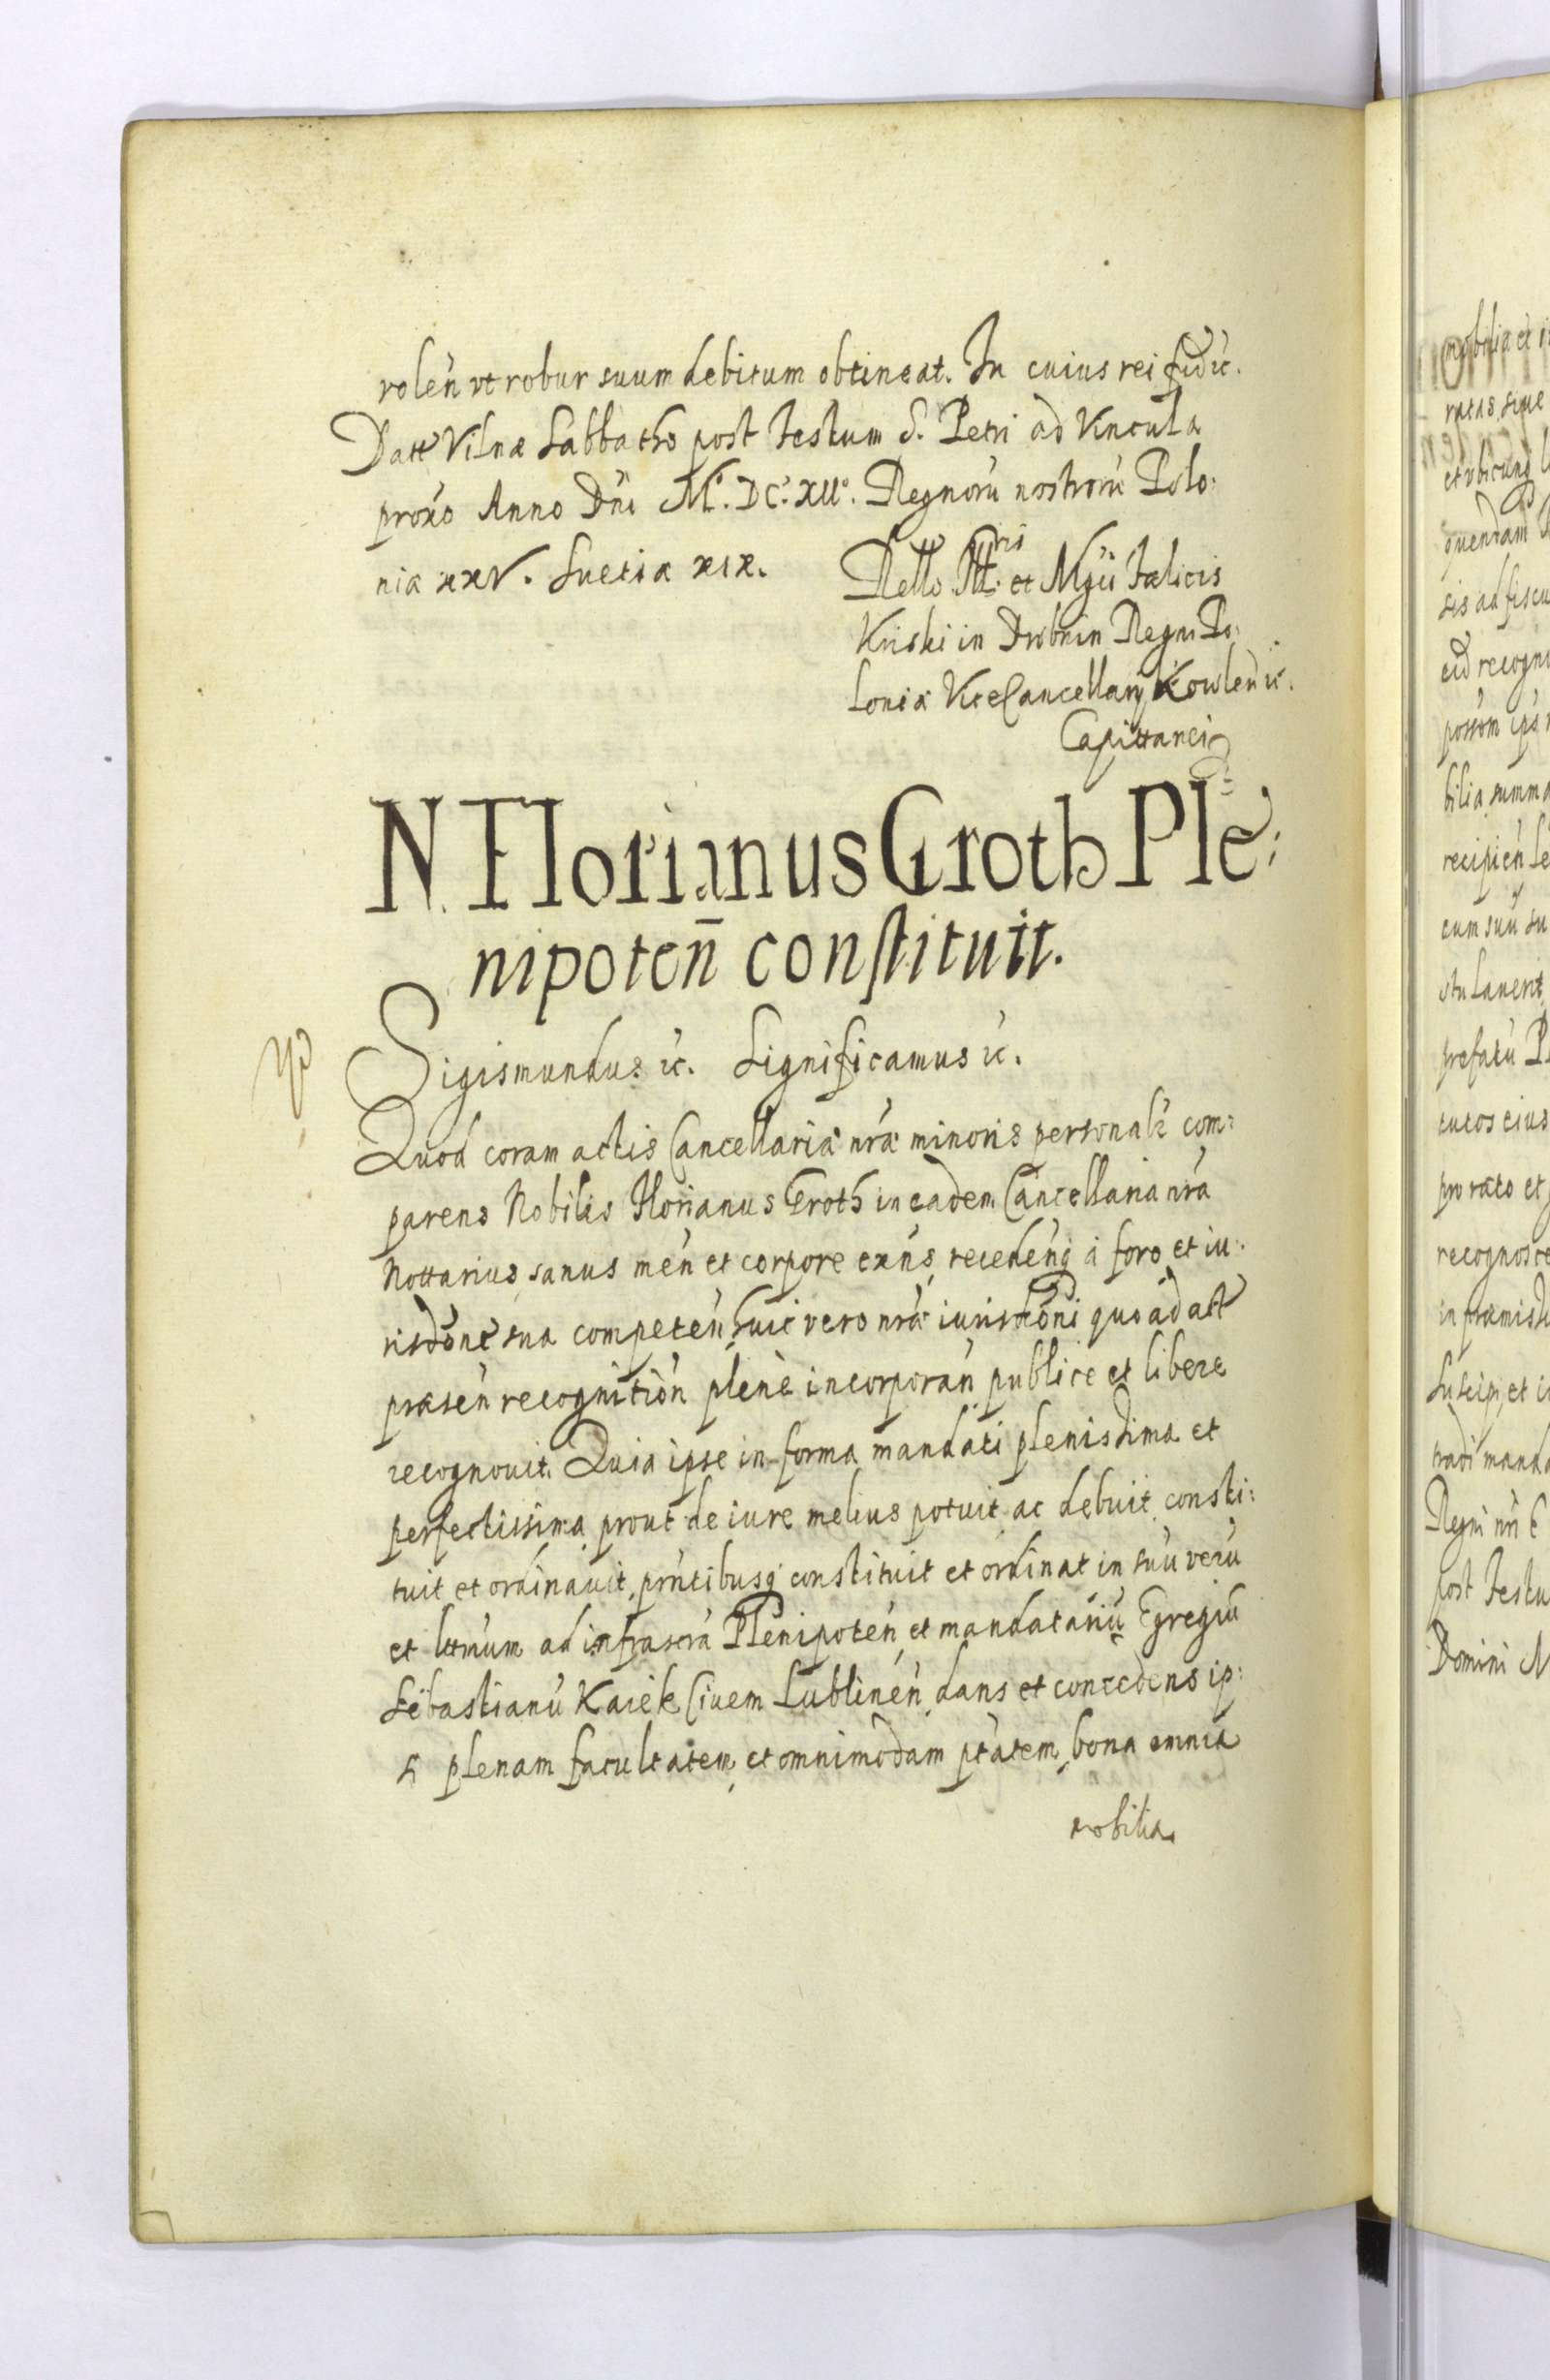 volen̄ vt robur suum debitum obtineat. In cuius rei fid ꝛc.
Datt Vilnæ Sabbatho post Festum S. Petri ad Vincula
proxo Anno Dni Mº. DCº. XIIº. Regnorū nostrorū Polo:
niæ xxv. Sueciæ xix.
Rello Illris et Mgci Fælicis
Kriski in Drobnin Regni Po:
loniæ ViceCancellarij Kowlen̄ ꝛc.
Capittanei
N. Florianus Groth Ple:
nipoten̄ constituit.
Sigismundus ꝛc. Significamus ꝛc.
Quod coram actis Cancellariæ nrǣ minoris personalr com:
parens Nobilis Florianus Groth in eadem Cancellaria nrā
Nottarius, sanus men̄ et corpore exn̄s, recedenq̄ à foro et iu:
risdōne sua competen̄, huic vero nrǣ iurisdōni quo ad act
præsen̄ recognitiōn plenè incorporan̄ publice et libere
recognouit. Quia ipse in forma mandati plenissima et
perfectissima, prout de iure melius potuit ac debuit, consti:
tuit et ordinauit, prn̄tibusq̄ constituit et ordinat in suū verū
et lttmūm ad infrascrā Plenipoten̄ et mandatariū Egregiū
Sebastianū Kaiek Ciuem Lublinen̄, dans et concedens ip:
si plenam facultatem, et omnimodam ptātem, bona omnia
mobilia
mobilia et i
ratas siue
et vbicunq̄
quendam
sis ad fiscu
eid recogn
possōm ips
bilia summa
recipien̄ le
cum suū su
stulauerit
prefatū P
cutos eius
pro rato et
recognosce
in præmiss
Suscipi et i
tradi manda
Regni nri
post Festu
Domini M